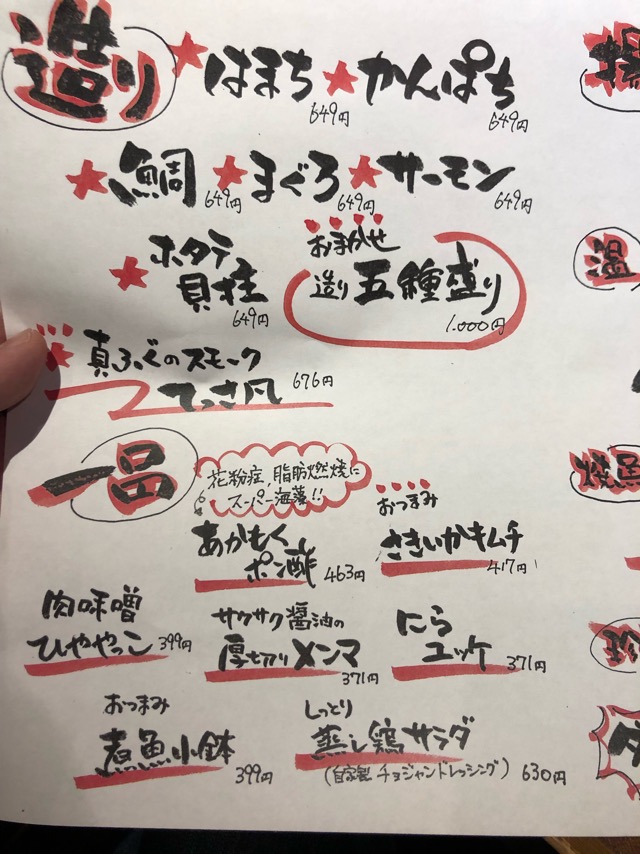 造り
はまち 649円
かんぱち 649円
鯛 649円
まぐろ 649円
サーモン 649円
ホタテ
貝柱 649円
おまかせ
造り五種盛り
1.000円
真ふぐのスモーク
てっさ風 676円
一品
花粉症、脂肪燃焼に
スーパー海藻!!
あかもく
ポン酢 463円
おつまみ
さきいかキムチ
417円
肉味噌
ひややっこ 399円
サクサク醤油の
厚切りメンマ
371円
にら
ユッケ 371円
おつまみ
煮魚小鉢
399円
しっとり
蒸し鶏サラダ
(自家製 チョジャンドレッシング) 630円
焼魚